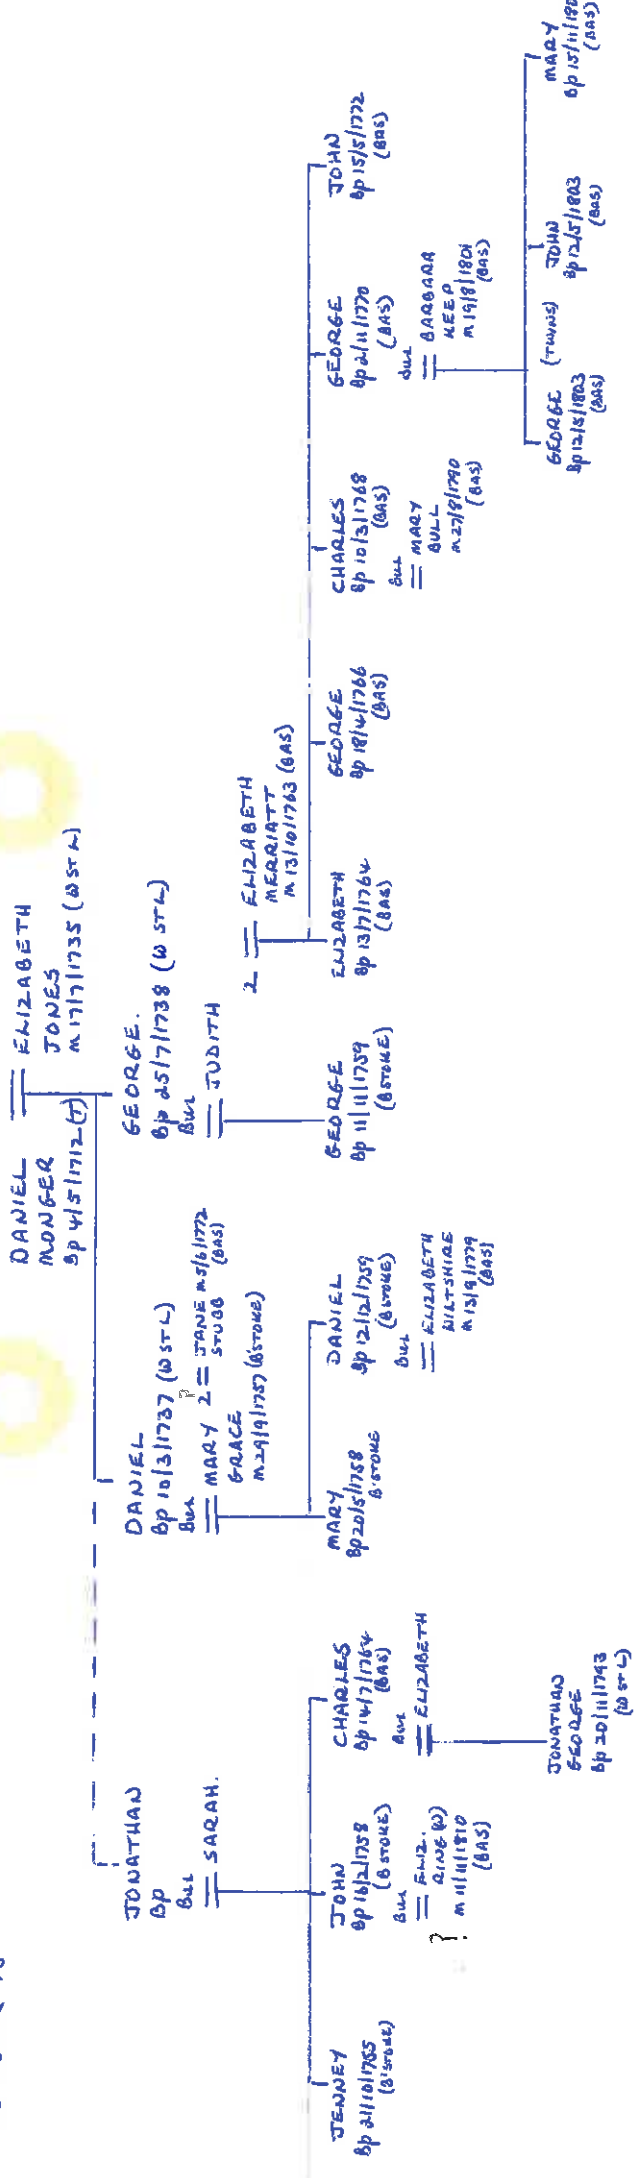 DANIEL
MONGER
Bp 4/5/1712 (T)
ELIZABETH
JONES
m 17/7/1735 (W ST L)
JONATHAN
Bp
Bur
= SARAH.
DANIEL
Bp 10/3/1737 (W ST L)
Bur
= MARY
GRACE
m 29/9/1757 (B'STOKE)
?
2 = JANE m 5/6/1772
STUBB (BAS)
GEORGE.
Bp 25/7/1738 (W ST L)
Bur
= JUDITH
2 = ELIZABETH
MERRIATT
m 13/10/1763 (BAS)
JENNEY
Bp 21/10/1755
(B'STOKE)
JOHN
Bp 16/2/1758
(B STOKE)
Bur
? = ELIZ.
RING (W)
m 11/11/1810
(BAS)
CHARLES
Bp 14/7/1764
(BAS)
Bur
= ELIZABETH
MARY
Bp 20/5/1758
B'STOKE
DANIEL
Bp 12/12/1759
(B STOKE)
Bur
= ELIZABETH
WILTSHIRE
m 13/9/1779
(BAS)
GEORGE
Bp 11/11/1759
(B STOKE)
ELIZABETH
Bp 13/7/1764
(BAS)
GEORGE
Bp 18/4/1766
(BAS)
CHARLES
Bp 10/3/1768
(BAS)
Bur
= MARY
BULL
m 27/8/1790
(BAS)
GEORGE
Bp 2/11/1770
(BAS)
Bur
= BARBARA
KEEP
m 19/8/1801
(BAS)
JOHN
Bp 15/5/1772
(BAS)
JONATHAN
GEORGE
Bp 20/11/1793
(W ST L)
GEORGE
Bp 12/5/1803
(BAS)
(TWINS)
JOHN
Bp 12/5/1803
(BAS)
MARY
Bp 15/11/180
(BAS)